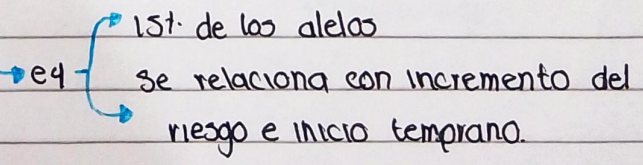 15%. de los alelos
e4
se relaciona con incremento del
riesgo e inicio temprano.